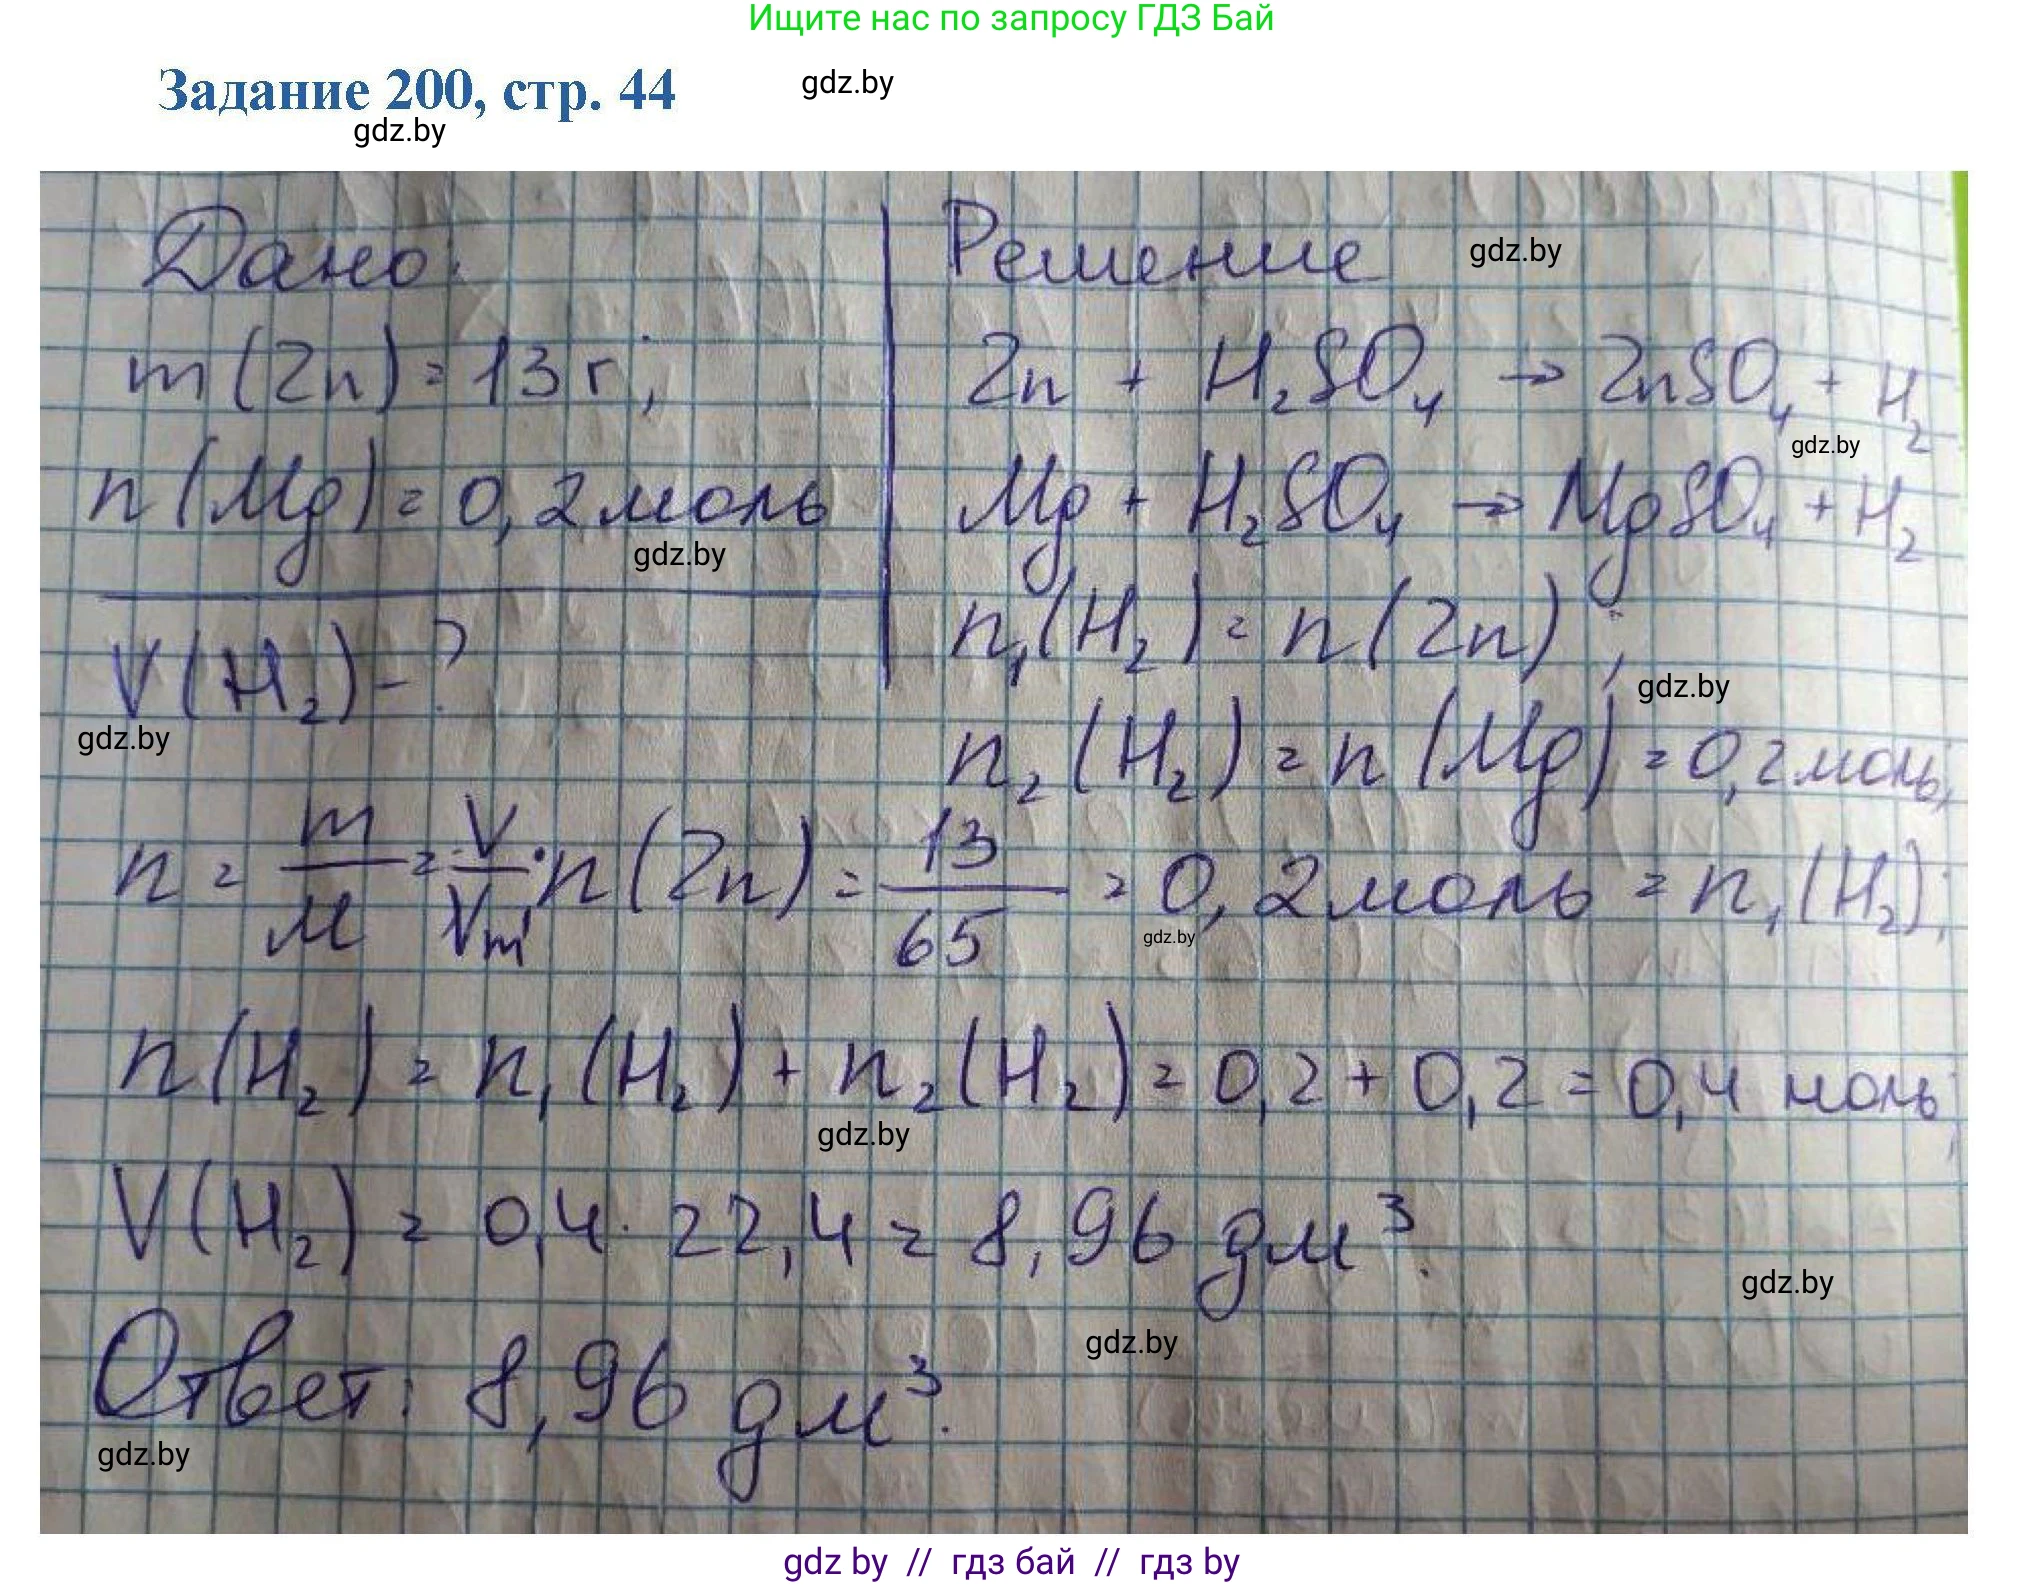 Ищите нас по запросу ГДЗ Бай
Задание 200, стр. 44
gdz.by
gdz.by
Дано:
m(Zn) = 13 г;
n(Mg) = 0,2 моль
gdz.by
V(H₂) - ?
gdz.by
Решение
gdz.by
Zn + H₂SO₄ → ZnSO₄ + H₂
gdz.by
Mg + H₂SO₄ → MgSO₄ + H₂
n₁(H₂) = n(Zn);
gdz.by
n₂(H₂) = n(Mg) = 0,2 моль;
n = m/M = V/Vm; n(Zn) = 13/65 = 0,2 моль = n₁(H₂);
gdz.by
n(H₂) = n₁(H₂) + n₂(H₂) = 0,2 + 0,2 = 0,4 моль;
gdz.by
V(H₂) = 0,4 · 22,4 = 8,96 дм³.
gdz.by
gdz.by
Ответ: 8,96 дм³.
gdz.by
gdz by // гдз бай // гдз by